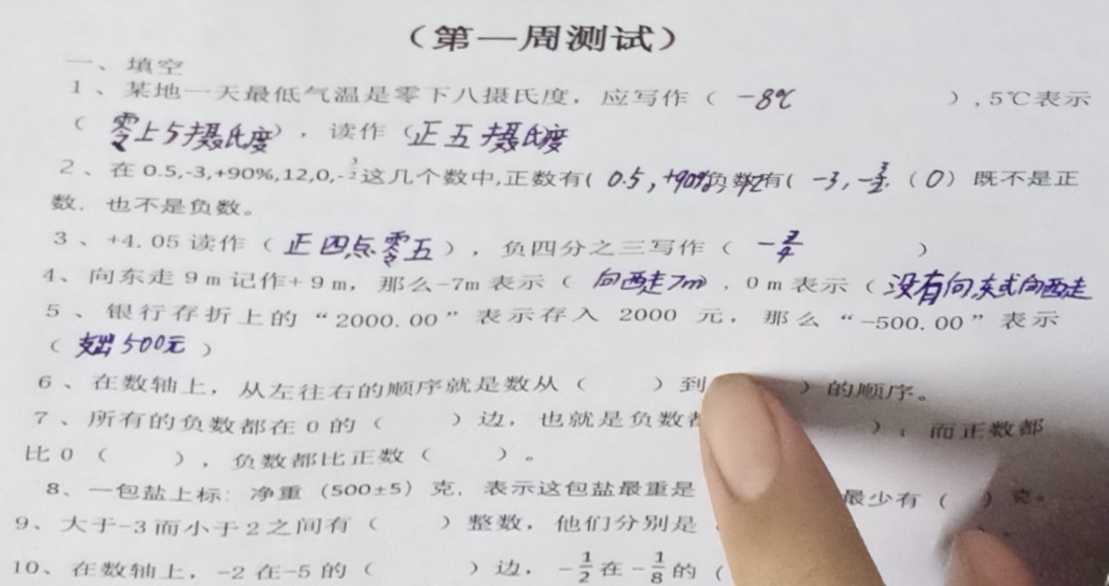 （第一周测试）
一、填空
1、某地一天最低气温是零下八摄氏度，应写作（ -8℃ ）,5℃表示
（ 零上5摄氏度），读作（正五摄氏度
2、在0.5,-3,+90%,12,0,-3/2这几个数中,正数有( 0.5，+90%，12负数有( -3,-3/2,（0）既不是正
数．也不是负数。
3、+4.05读作（正四点零五），负四分之三写作（ -3/4 ）
4、向东走9m记作+9m，那么-7m表示（ 向西走7m），0m表示（没有向东或向西走
5、银行存折上的“2000.00”表示存入2000元，那么“-500.00”表示
（ 支出500元 ）
6、在数轴上，从左往右的顺序就是数从（ ）到 ）的顺序。
7、所有的负数都在0的（ ）边，也就是负数都 ）；而正数都
比0（ ），负数都比正数（ ）。
8、一包盐上标：净重（500±5）克，表示这包盐最重是 最少有（ ）克。
9、大于-3而小于2之间有（ ）整数，他们分别是
10、在数轴上，-2在-5的（ ）边，-1/2在-1/8的（